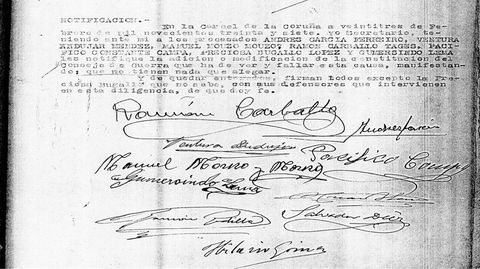 NOTIFICACION.-
En la Carcel de la coruña a veintitres de Fe-
brero de mil novecientos treinta y siete, yo Secretario, te-
niendo ante mi a los procesados ANDRES GARCIA FERREIRO, VENTURA
ANDUJAR MENDEZ, MANUEL MOUZO MOUZO, RAMON CARBALLO TAGES, PACI-
FICO CONSTANTE CAMPA, PRECIOSA BUGALLO LOPEZ Y GUMERSINDO LEMA
les notifique la adicion o modificacion de la constitucion del
Consejo de Guerra que ha de ver y fallar esta causa, manifestan-
do: que no tienen nada que alegar.
Y de quedar enterados, firman todos excepto la Pre-
ciosa Bugallo que no sabe, con sus defensores que intervienen
en esta diligencia, de que doy fe.
Ramón Carballo
Andres García
Ventura Andujar
Pacífico Campa
Manuel Mouzo y Mouzo
Gumersindo Lema
Ramón
Salvador
Hilario Gómez